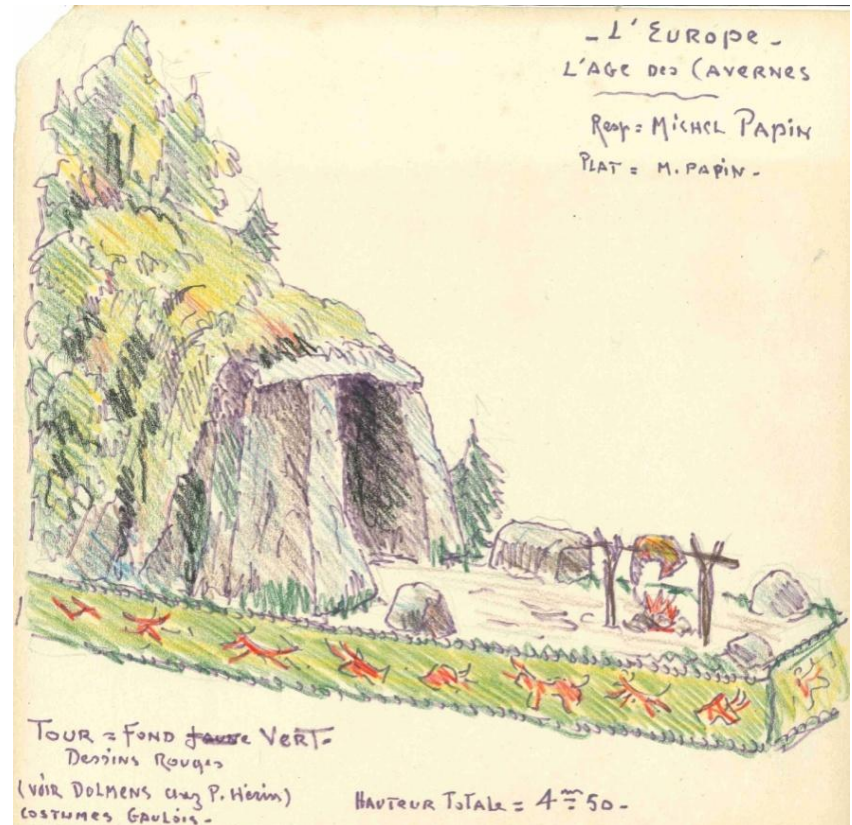 - L'EUROPE -
L'AGE DES CAVERNES
Resp = MICHEL PAPIN
PLAT = M. PAPIN -
TOUR = FOND jaune VERT -
DESSINS ROUGES
(VOIR DOLMENS chez P. Hérin)
COSTUMES GAULOIS -
HAUTEUR TOTALE = 4m 50 -